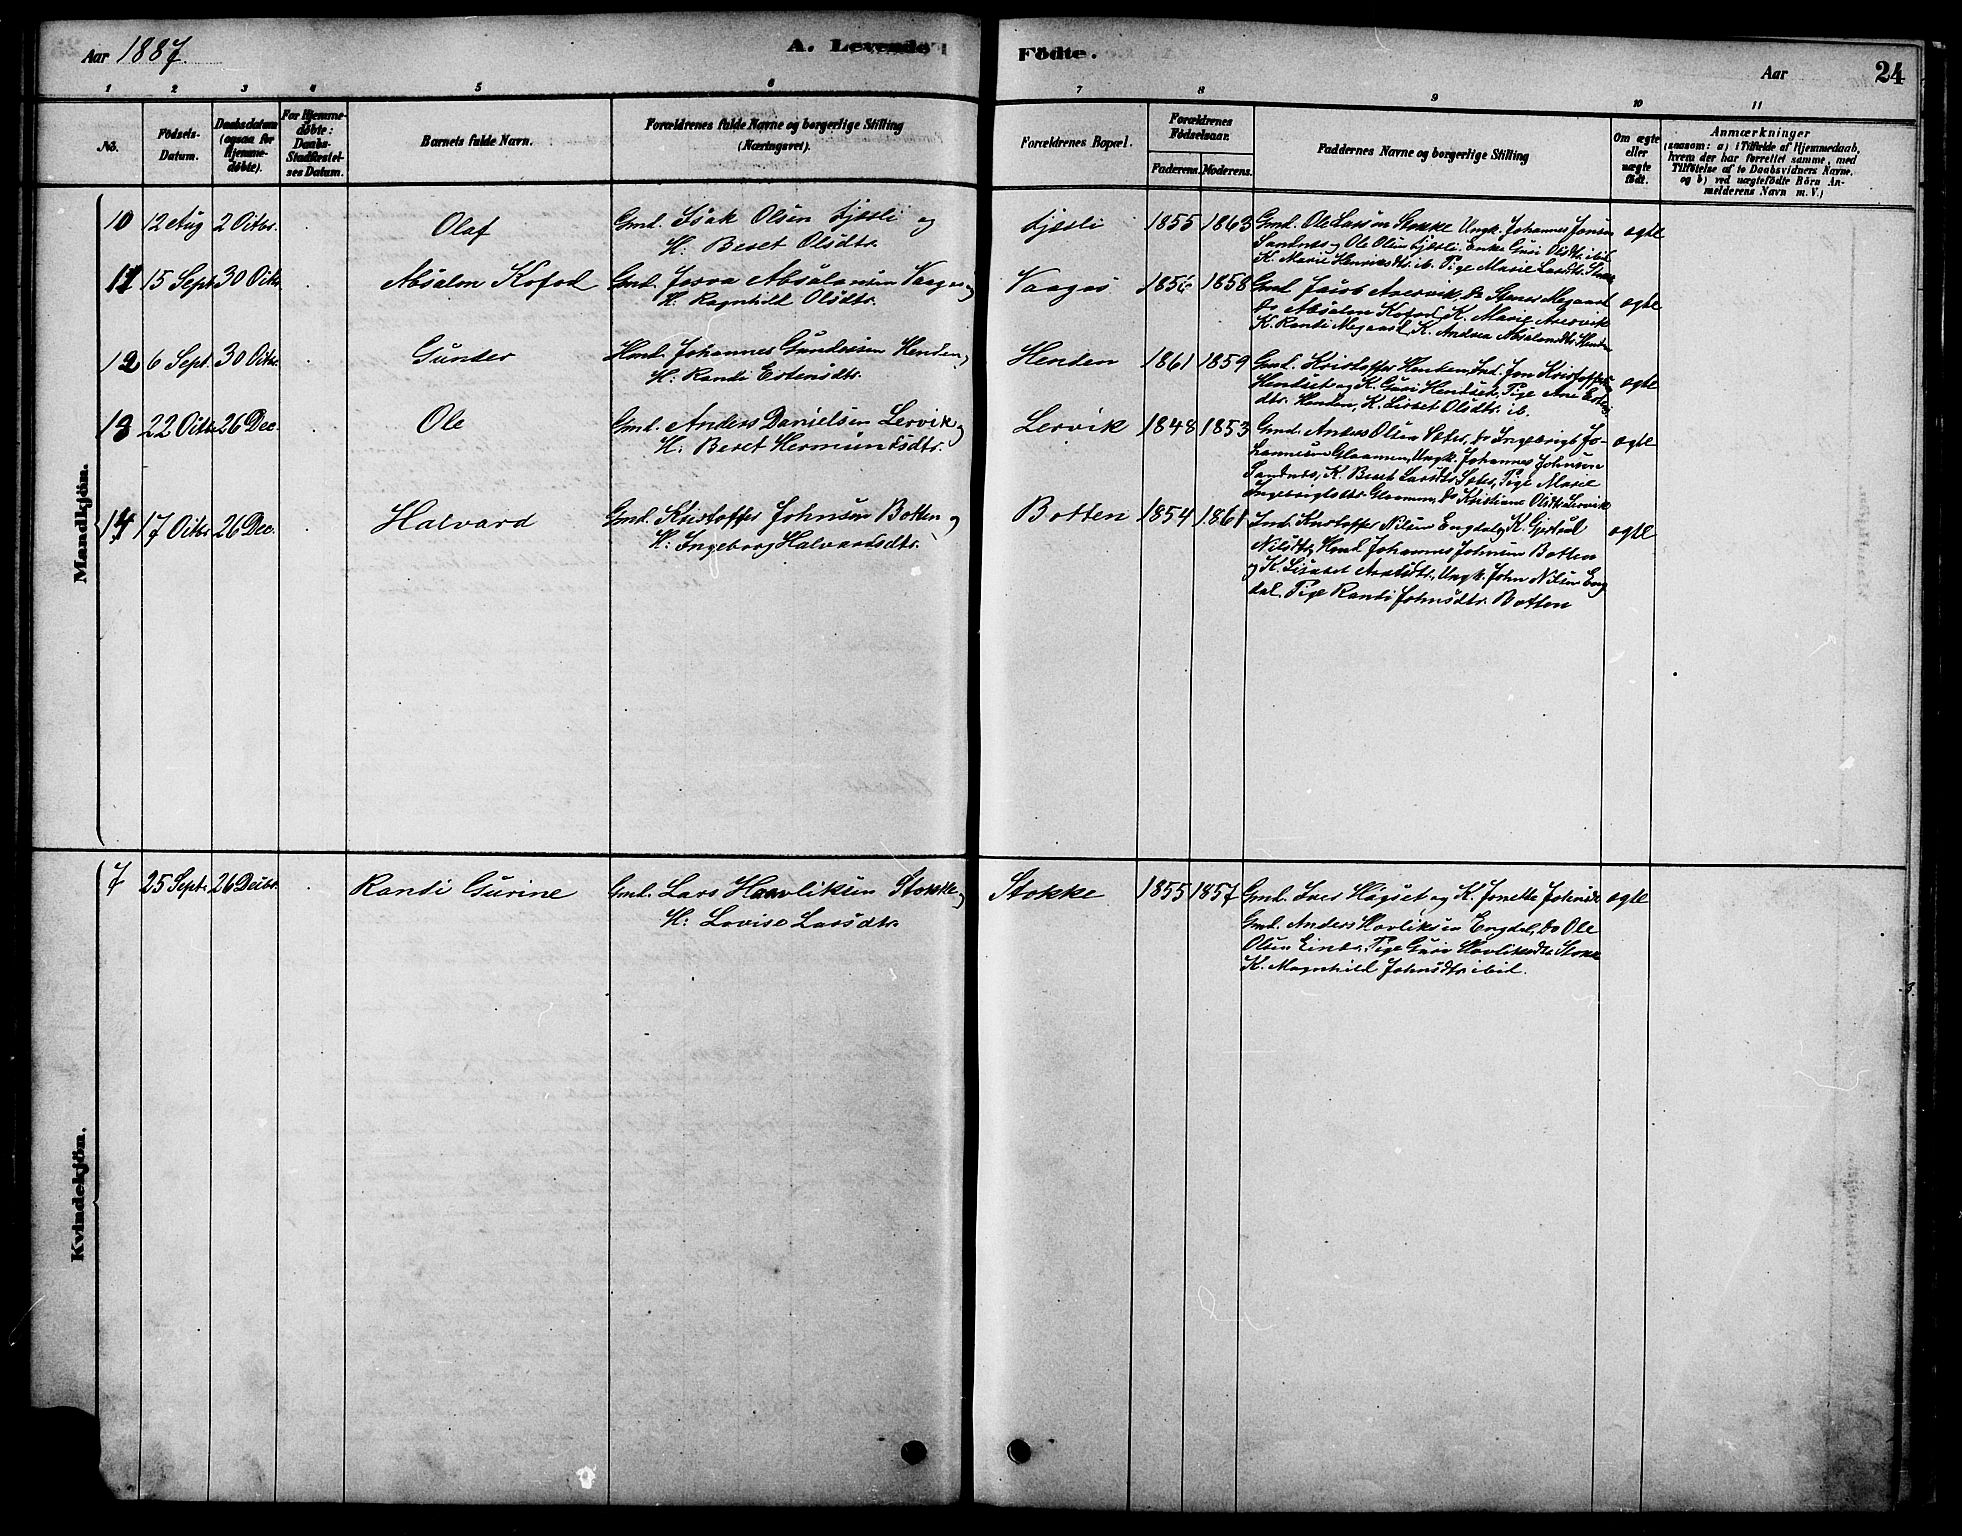 Aar 1887.
A. Levende
Födte.
Aar
24
1 2 3 4 5 6 7 8 9 10 11
No.
Födsels-
Datum.
Daabsdatum
(ogsaa for
Hjemme-
døbte).
For Hjemme-
døbte:
Daabs-
Stadfæstel-
ses Datum.
Barnets fulde Navn.
Forældrenes fulde Navne og borgerlige Stilling
(Næringsvei).
Forældrenes Bopæl.
Forældrenes
Fødselsaar.
Faderens. Moderens.
Faddernes Navne og borgerlige Stilling
Om ægte
eller
uægte
født.
Anmærkninger
(saasom: a) i Tilfælde af Hjemmedaab,
hvem der har forrettet samme, med
Tilföielse af to Daabsvidners Navne,
og b) ved uægtefödte Börn An-
melderens Navn m. V.)
Mandkjön.
10 12 Aug 2 Octbr. Olaf
Gmd. Isak Olsen Fjesli og
H: Beret Olsdtr.
Fjesli 1855 1863
Gmd. Ole Larsen Stokke Ungk. Johannes Jonsen
Sandnes og Ole Olsen Fjesli. Enke Guri Olsdtr. ibid
K. Marie Henriksdtr. ib. Pige Marie Larsdtr.
ægte
11 15 Sept 30 Octbr Absalon Kofod
Gmd. Josva Absalonsen Vaagos og
H. Ragnhild Olsdtr.
Vaagos 1856 1858
Gmd Jacob Arervik, do Stener Megaard
do Absalon Kofod, K. Marie Arervik
K. Randi Megaard, K. Andrea Absalonsdtr. Henden
ægte
12 6 Sept. 30 Octbr. Gunder
Hmd. Johannes Gundersen Henden og
H. Randi Estensdtr.
Henden 1861 1859
Gmd. Kristoffer Henden, Ind. Jon Kristoffersen
Hendset og K. Guri Hendset, Pige Ane Esten-
dtr. Henden, K. Lisbet Olsdtr. ib.
ægte
13 22 Octbr 26 Dec. Ole
Gmd. Anders Danielsen Lervik og
H. Beret Hermundsdtr.
Lervik 1848 1853
Gmd. Anders Olsen Sæter, do Ingebrigt Jo-
hannesen Glaamen, Ungk. Johannes Johnsen
Sandnes, K. Beret Larsdtr. Sæter, Pige Marie
Ingebrigtsdtr Glaamen, do Kristiane Olsdtr Lervik
ægte
14 17 Octbr 26 Dec. Halvard
Gmd. Kristoffer Johnsen Botten og
H: Ingeborg Halvardsdtr.
Botten 1854 1861
Ind. Kristoffer Nilsen Engdal, K. Gjertrud
Nilsdtr, Hmd. Johannes Johnsen Botten
og K. Lisabet Arntsdtr., Ungk. John Nilsen Eng
dal. Pige Randi Johnsdtr. Botten
ægte
Kvindekjön.
7 25 Sept. 26 Decbr. Randi Gurine
Gmd. Lars Haavliksen Stokke og
H: Lovise Larsdtr.
Stokke 1855 1857
Gmd. Iver Högset og K. Jonette Johnsdr
Gmd. Anders Havliksen Engdal, do Ole
Olsen Einbr, Pige Guri Havliksdtr Stokke
K. Magnhild Johnsdtr. ibid.
ægte